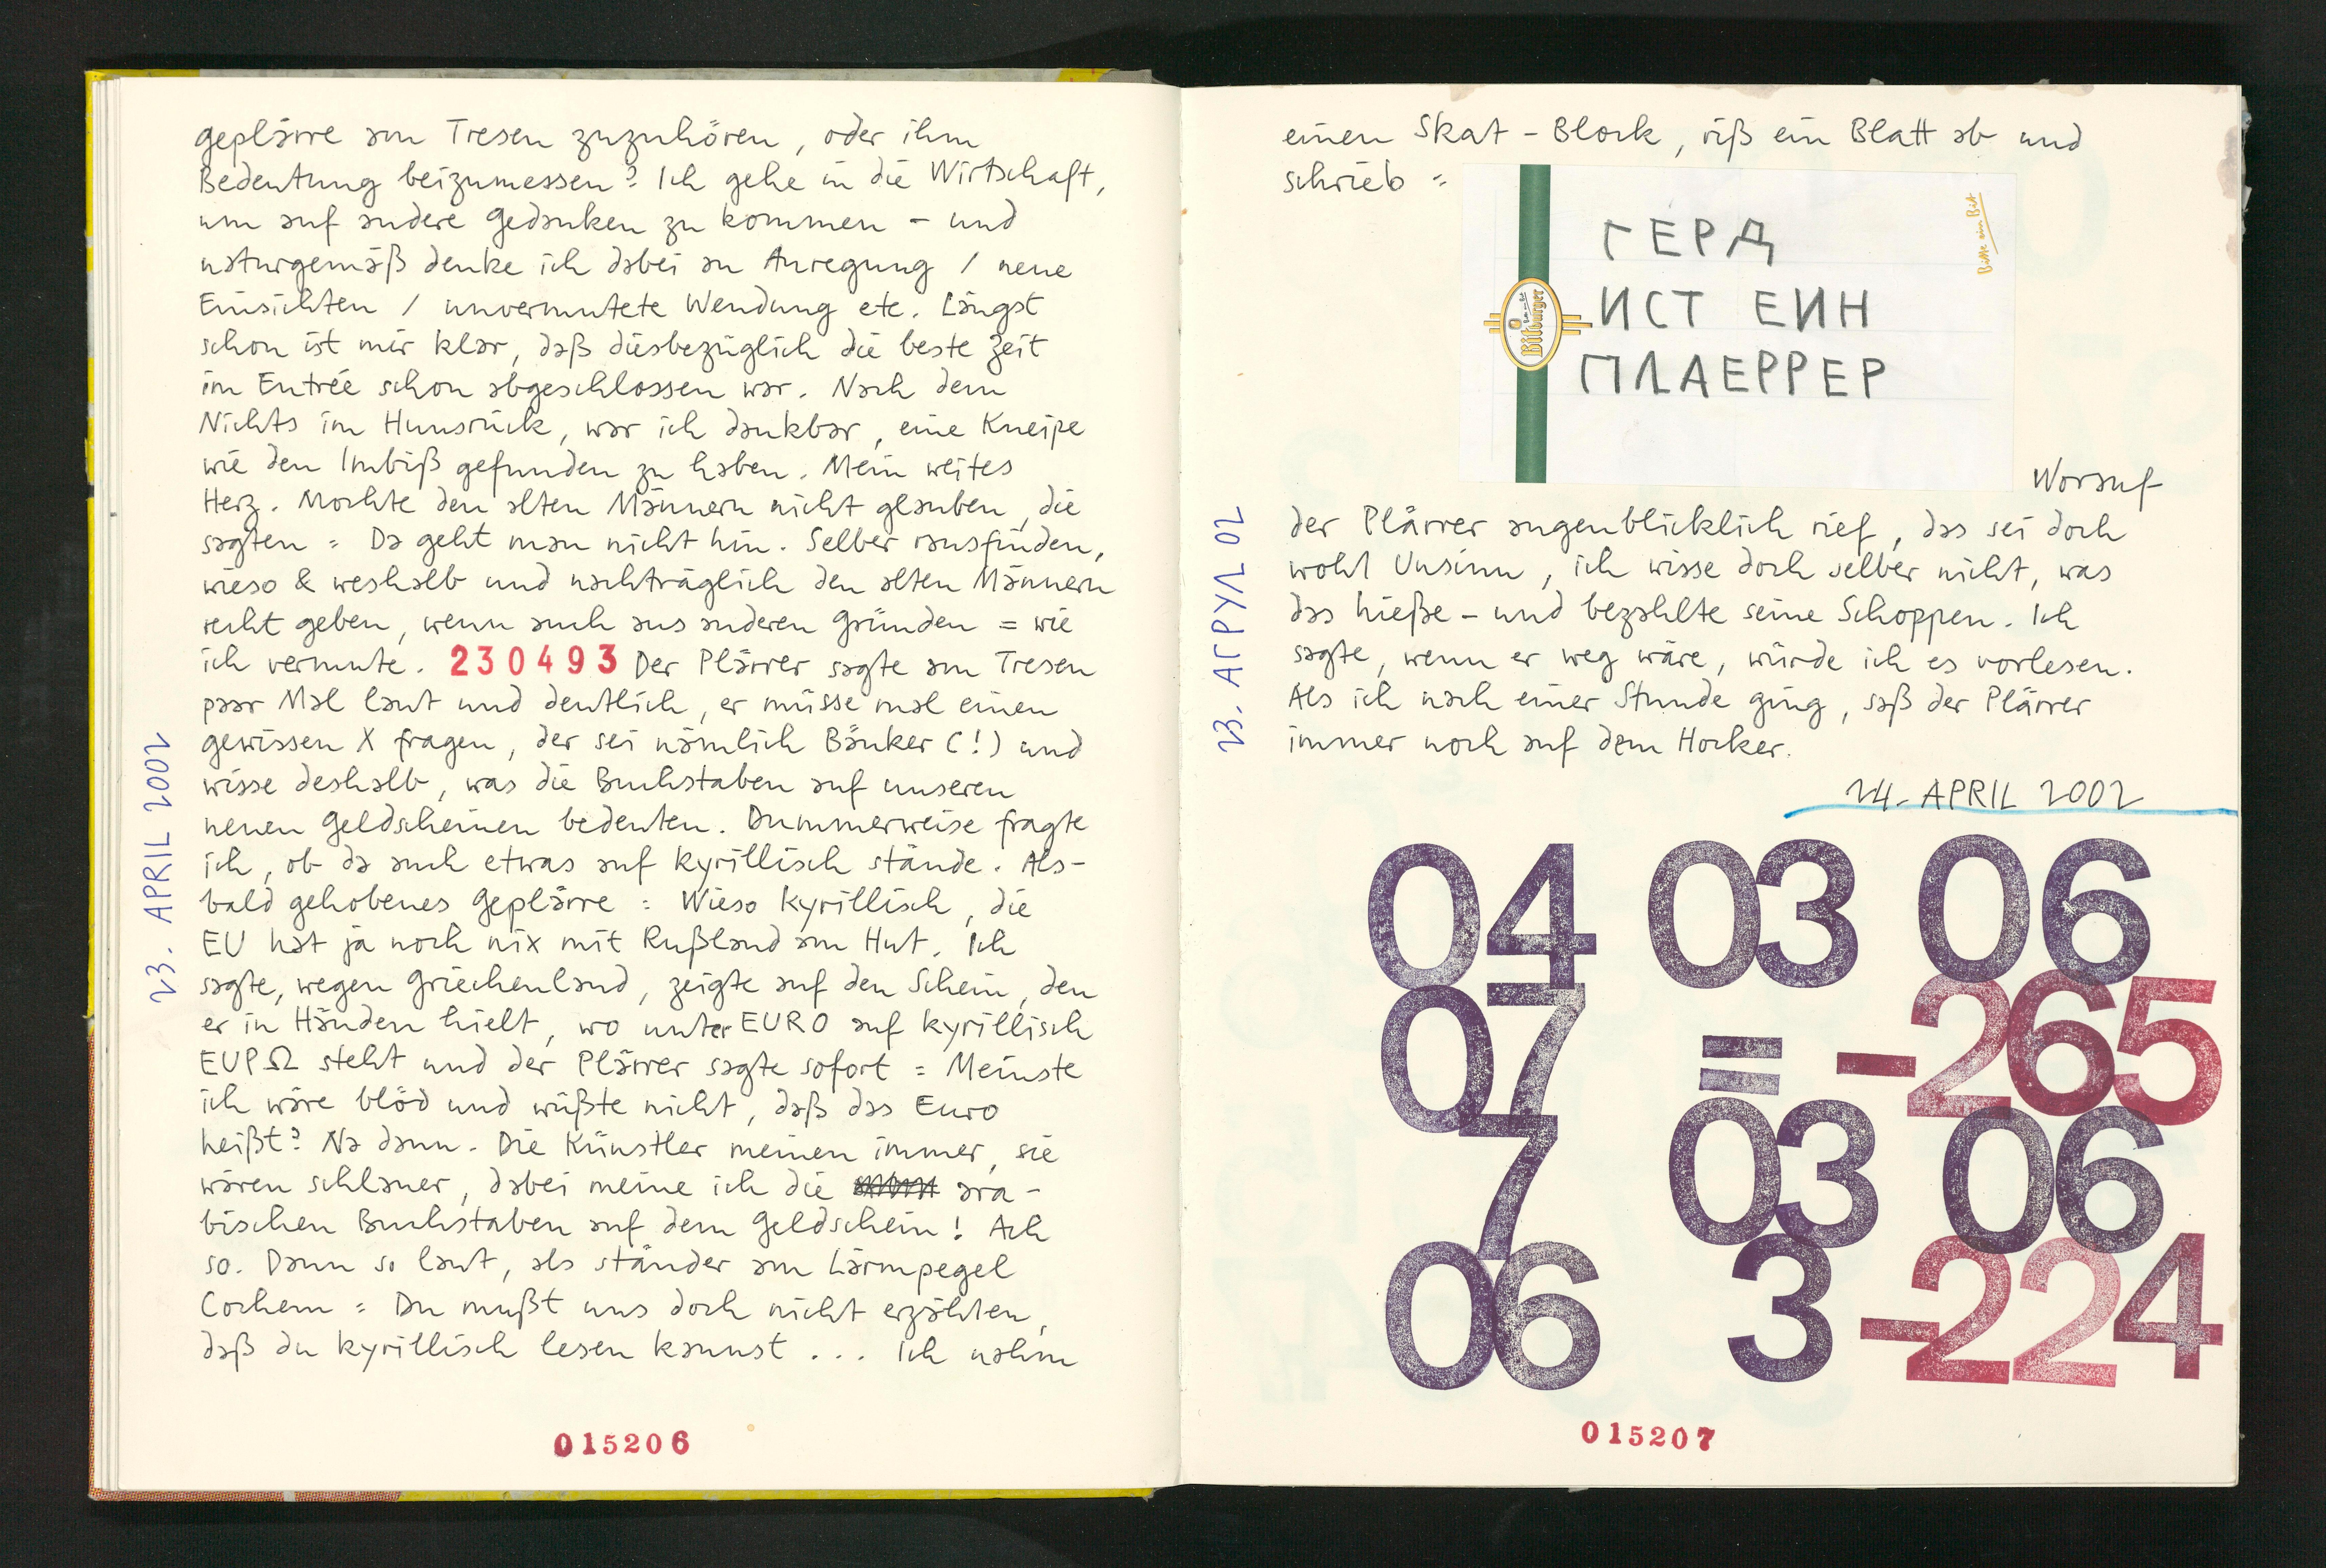 geplärre am Tresen zuzuhören, oder ihm
Bedeutung beizumessen? Ich gehe in die Wirtschaft,
um auf andere Gedanken zu kommen – und
naturgemäß denke ich dabei an Anregung / neue
Einsichten / unvermutete Wendung etc. Längst
schon ist mir klar, daß diesbezüglich die beste Zeit
im Entrée schon abgeschlossen war. Nach dem
Nichts im Hunsrück, war ich dankbar, eine Kneipe
wie den Imbiß gefunden zu haben. Mein weites
Herz. Mochte den alten Männern nicht glauben, die
sagten = Da geht man nicht hin. Selber rausfinden,
wieso & weshalb und nachträglich den alten Männern
recht geben, wenn auch aus anderen Gründen = wie
ich vermute. 230493 Der Plärrer sagte am Tresen
paar Mal laut und deutlich, er müsse mal einen
gewissen X fragen, der sei nämlich Bänker (!) und
wisse deshalb, was die Buchstaben auf unseren
neuen Geldscheinen bedeuten. Dummerweise fragte
ich, ob da auch etwas auf kyrillisch stände. Als-
bald gehobenes Geplärre = Wieso kyrillisch, die
EU hat ja noch nix mit Rußland am Hut. Ich
sagte, wegen Griechenland, zeigte auf den Schein, den
er in Händen hielt, wo unter EURO auf kyrillisch
EYPΩ steht und der Plärrer sagte sofort = Meinste
ich wäre blöd und wüßte nicht, daß das Euro
heißt? Na dann. Die Künstler meinen immer, sie
wären schlauer, dabei meine ich die ara-
bischen Buchstaben auf dem Geldschein! Ach
so. Dann so laut, als ständer am Lärmpegel
Cochem = Du mußt uns doch nicht erzählen,
daß du kyrillisch lesen kannst ... Ich nahm
23. APRIL 2002
015206
einen Skat-Block, riß ein Blatt ab und
schrieb =
ГЕРД
ИСТ ЕИН
ПЛАЕРРЕР
Bitburger
Bitte ein Bit
Worauf
der Plärrer augenblicklich rief, das sei doch
wohl Unsinn, ich wisse doch selber nicht, was
das hieße – und bezahlte seine Schoppen. Ich
sagte, wenn er weg wäre, würde ich es vorlesen.
Als ich nach einer Stunde ging, saß der Plärrer
immer noch auf dem Hocker.
23. АГРУЛ 02
24. APRIL 2002
04 03 06
07 = -265
7 03 06
06 3 -224
015207